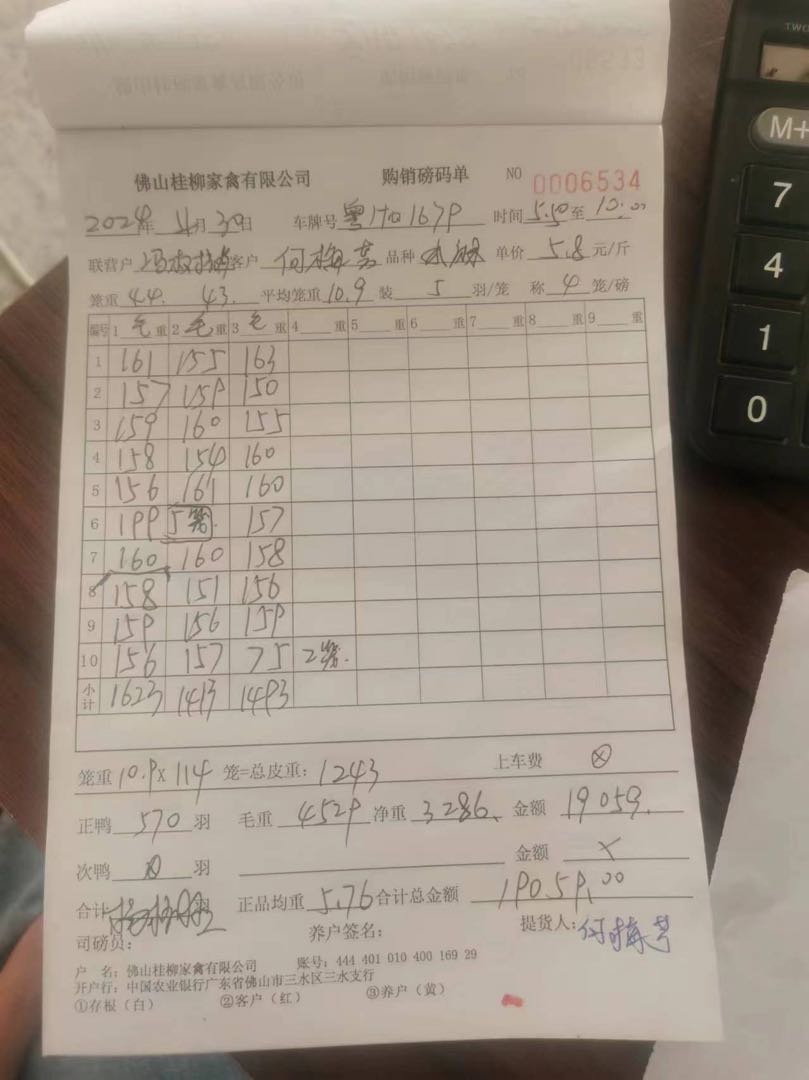 佛山桂柳家禽有限公司 购销磅码单 NO 0006534
2024年 4月 30日 车牌号 粤 167P 时间 5.50 至 10:00
联营户 客户 何梅 品种 单价 5.8 元/斤
笼重 44. 43. 平均笼重 10.9 装 5 羽/笼 称 4 笼/磅
编号 1 毛 重 2 毛 重 3 毛 重 4 重 5 重 6 重 7 重 8 重 9 重
1 161 155 163
2 157 159 150
3 159 160 155
4 158 154 160
5 156 161 160
6 199 5笼 157
7 160 160 158
8 158 151 156
9 159 156 159
10 156 157 75 2笼.
小计 1623 1413 1493
笼重 10.9 x 114 笼=总皮重: 1243 上车费 ⊗
正鸭 570 羽 毛重 4529 净重 3286. 金额 19059.
次鸭 0 羽 金额 ×
合计 羽 正品均重 5.76 合计总金额 19059.00
司磅员: 养户签名: 提货人: 何梅
户 名: 佛山桂柳家禽有限公司 账号: 444 401 010 400 169 29
开户行: 中国农业银行广东省佛山市三水区三水支行
①存根(白) ②客户(红) ③养户(黄)
M+
7
4
1
0